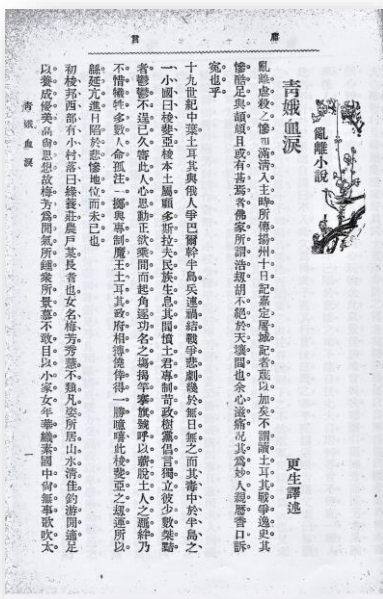 庸言
亂離小說
青娥血淚
更生譯述
亂離虐殺之慘而滿淸入主時所傳揚州十日記嘉定屠城記者蔑以加矣不謂讀土耳其戰爭逸史其
慘酷足與頡頏且或有甚焉者佛家所謂浩刼胡不絕於天壤間也余心滋痛况其爲妙人親歷香口訴
寃也乎
十九世紀中葉土耳其與俄人爭巴爾幹半島兵連禍結戰爭悲劇幾於無日無之而其毒中於半島之
一小國曰梭斐亞梭本土屬顧多斯拉夫民族生息其間憤土君專制苛政樹黨倡言獨立彼少數桀黠
者鬱鬱不逞已久審此人心思動正欲乘間而起角逐功名之塲揭竿搴旗號呼以蘄脫土人之羈絆乃
不惜犧牲多數人命孤注一擲與專制魔王土耳其政府相搏僥倖得一勝噫嘻此梭斐亞之刼運所以
緜延亢進日陷於悲慘地位而未已也
初梭邦西部有小村落曰綠養莊農戶某長者也女名梅芳秀慧不類凡姿所居山水淸佳釣游閒適足
以養成優美高尙思想故梅芳爲閒氣所鍾衆所景慕不敢目以小家女年華纖素國中尙無事歌吹太
青娥血淚
一